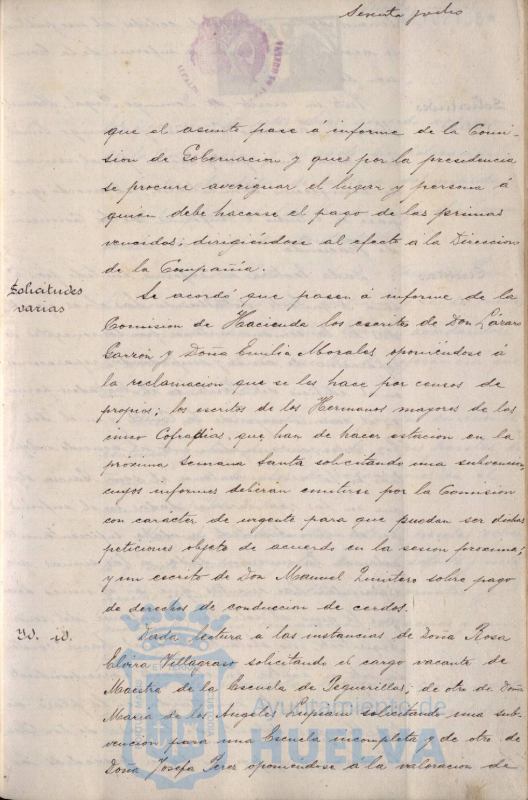 Sesenta y ocho
que el asunto pase á informe de la Comi-
sion de Gobernacion y que por la presidencia
se procure averiguar el lugar y persona á
quien debe hacerse el pago de las primas
vencidas; dirigiéndose al efecto á la Direccion
de la Compañia.
Solicitudes
varias
Se acordó que pasen á informe de la
Comision de Hacienda los escritos de Don Lázaro
Garzón y Doña Emilia Morales oponiéndose á
la reclamacion que se les hace por censos de
propios; los escritos de los Hermanos mayores de las
cinco Cofradias, que han de hacer estacion en la
próxima Semana Santa solicitando una subvencion,
cuyos informes deberán emitirse por la Comision
con carácter de urgente para que puedan ser dichas
peticiones objeto de acuerdo en la sesion procsima;
y un escrito de Don Manuel Quintero sobre pago
de derechos de conduccion de cerdos.
Yd. id.
Dada lectura á las instancias de Doña Rosa
Elvira Villagraso solicitando el cargo vacante de
Maestra de la Escuela de Peguerillas; de otra de Doña
Maria de los Angeles Lupiani solicitando una sub-
vencion para una Escuela incompleta y de otra de
Doña Josefa Perez oponiendose á la valoracion de
Ayuntamiento de
HUELVA